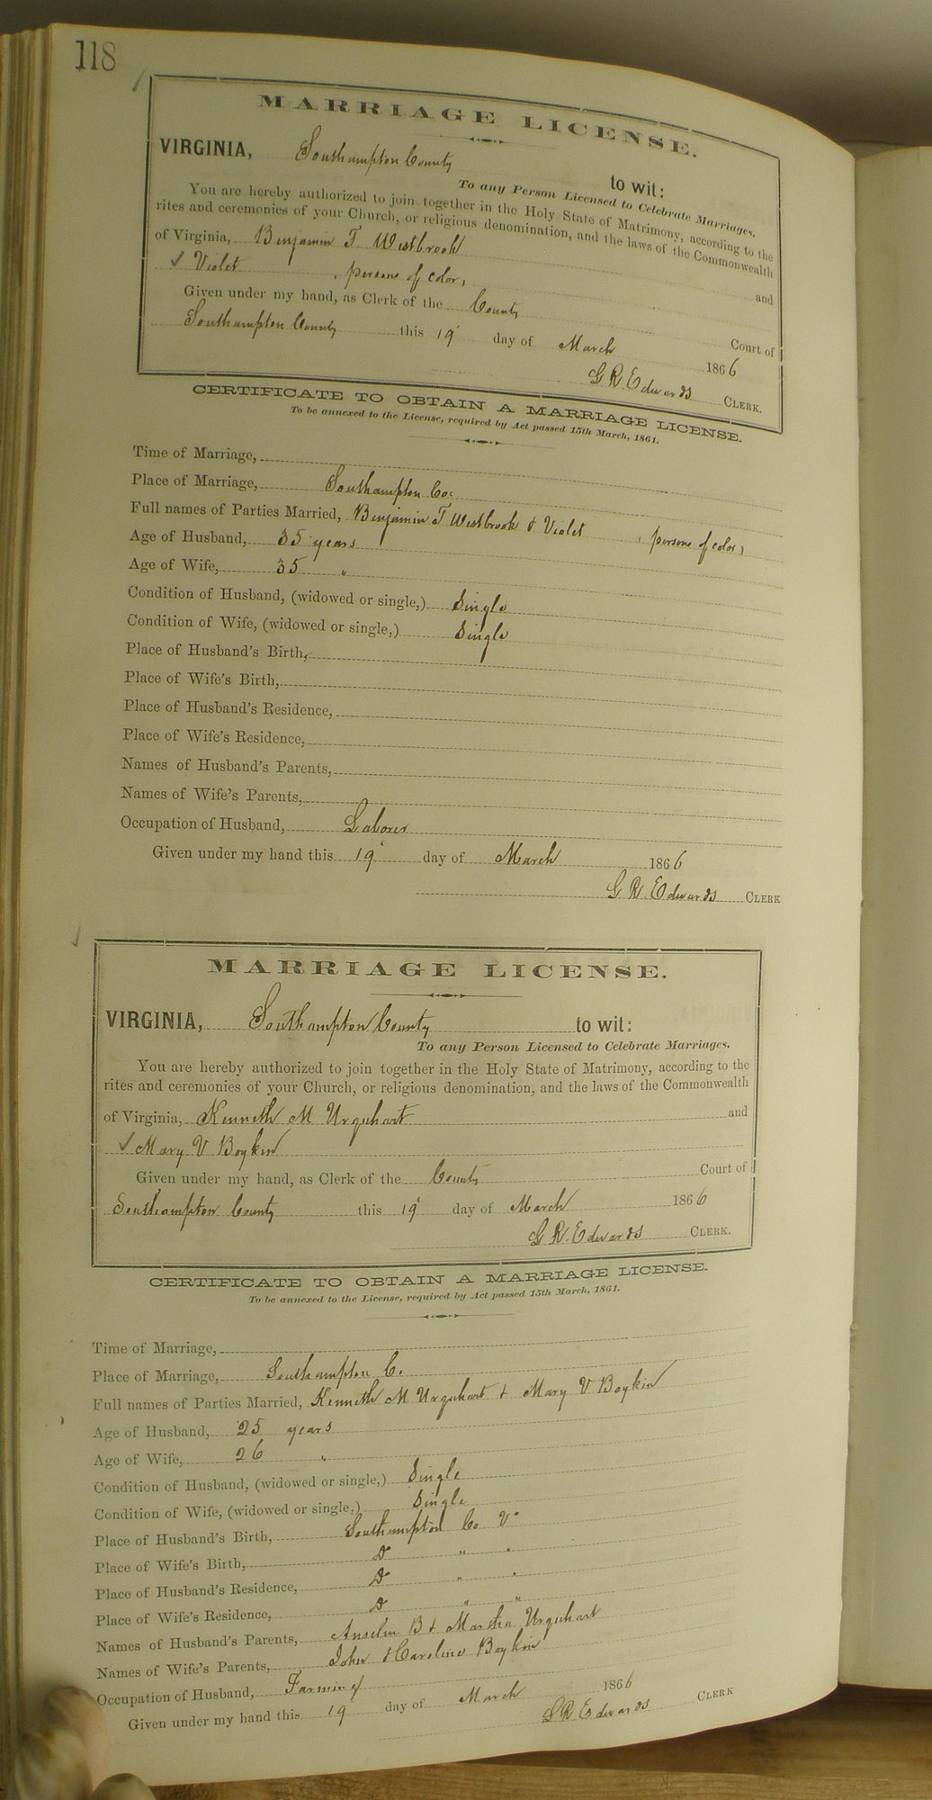 118
MARRIAGE LICENSE.
VIRGINIA, Southampton County to wit:
To any Person Licensed to Celebrate Marriages.
You are hereby authorized to join together in the Holy State of Matrimony, according to the
rites and ceremonies of your Church, or religious denomination, and the laws of the Commonwealth
of Virginia, Benjamin T Westbrook and
✓ Violet , persons of color,
Given under my hand, as Clerk of the County Court of
Southampton County this 19 day of March 1866
G R. Edwards CLERK.
CERTIFICATE TO OBTAIN A MARRIAGE LICENSE.
To be annexed to the License, required by Act passed 15th March, 1861.
Time of Marriage,
Place of Marriage, Southampton Co:
Full names of Parties Married, Benjamin T Westbrook & Violet , persons of color,
Age of Husband, 35 years
Age of Wife, 35 "
Condition of Husband, (widowed or single,) Single
Condition of Wife, (widowed or single,) Single
Place of Husband's Birth,
Place of Wife's Birth,
Place of Husband's Residence,
Place of Wife's Residence,
Names of Husband's Parents,
Names of Wife's Parents,
Occupation of Husband, Laborer
Given under my hand this 19 day of March 1866
G R. Edwards CLERK
MARRIAGE LICENSE.
VIRGINIA, Southampton County to wit:
To any Person Licensed to Celebrate Marriages.
You are hereby authorized to join together in the Holy State of Matrimony, according to the
rites and ceremonies of your Church, or religious denomination, and the laws of the Commonwealth
of Virginia, Kenneth M Urquhart and
✓ Mary V Boykin
Given under my hand, as Clerk of the County Court of
Southampton County this 19 day of March 1866
G R. Edwards CLERK.
CERTIFICATE TO OBTAIN A MARRIAGE LICENSE.
To be annexed to the License, required by Act passed 15th March, 1861.
Time of Marriage,
Place of Marriage, Southampton C.
Full names of Parties Married, Kenneth M Urquhart & Mary V Boykin
Age of Husband, 25 years
Age of Wife, 26 "
Condition of Husband, (widowed or single,) Single
Condition of Wife, (widowed or single,) Single
Place of Husband's Birth, Southampton Co Va
Place of Wife's Birth, Do " "
Place of Husband's Residence, Do " "
Place of Wife's Residence, Do " "
Names of Husband's Parents, Anselm B & Martha Urquhart
Names of Wife's Parents, John & Caroline Boykin
Occupation of Husband, Farming
Given under my hand this 19 day of March 1866
G R. Edwards CLERK